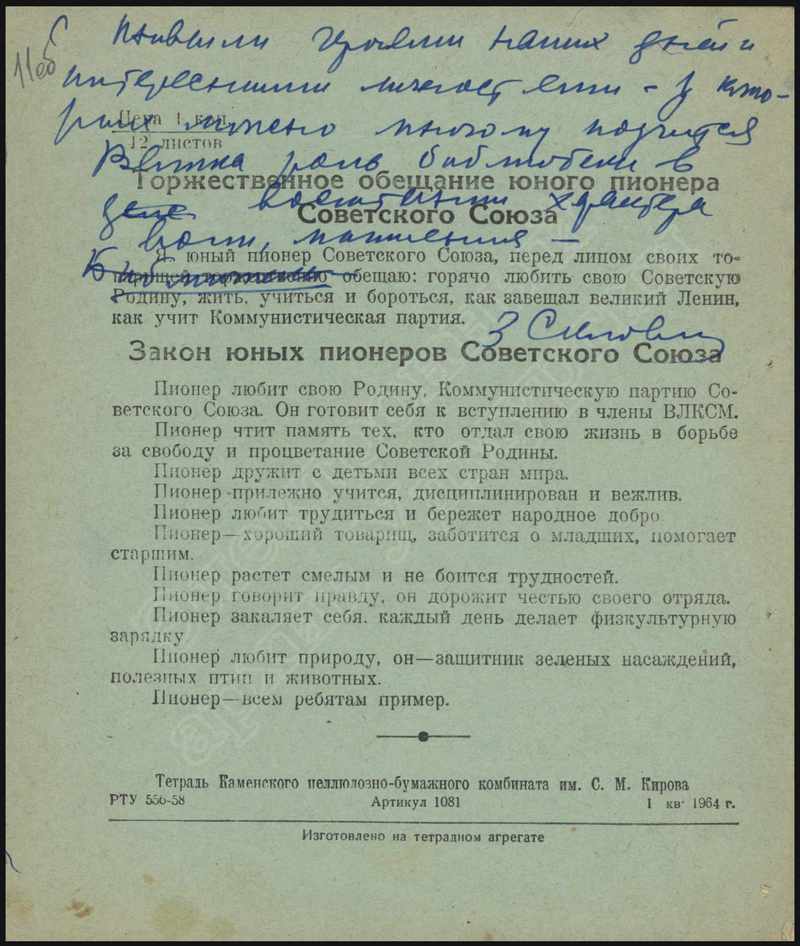 11об
с живыми героями наших дней и
интересными личностями - у кото-
рых можно многому научится
Цена 1 коп.
12 листов
Велика роль библиотеки в
Торжественное обещание юного пионера
деле воспитания характера
Советского Союза
воли, мышления -
Я юный пионер Советского Союза, перед лицом своих то-
варищей торжественно обещаю: горячо любить свою Советскую
Родину, жить, учиться и бороться, как завещал великий Ленин,
как учит Коммунистическая партия.
З
Закон юных пионеров Советского Союза
Пионер любит свою Родину, Коммунистическую партию Со-
ветского Союза. Он готовит себя к вступлению в члены ВЛКСМ.
Пионер чтит память тех, кто отдал свою жизнь в борьбе
за свободу и процветание Советской Родины.
Пионер дружит с детьми всех стран мира.
Пионер прилежно учится, дисциплинирован и вежлив.
Пионер любит трудиться и бережет народное добро
Пионер—хороший товарищ, заботится о младших, помогает
старшим.
Пионер растет смелым и не боится трудностей.
Пионер говорит правду, он дорожит честью своего отряда.
Пионер закаляет себя, каждый день делает физкультурную
зарядку
Пионер любит природу, он—защитник зеленых насаждений,
полезных птиц и животных.
Пионер—всем ребятам пример.
Тетрадь Каменского целлюлозно-бумажного комбината им. С. М. Кирова
РТУ 556-58 Артикул 1081 1 кв 1964 г.
Изготовлено на тетрадном агрегате